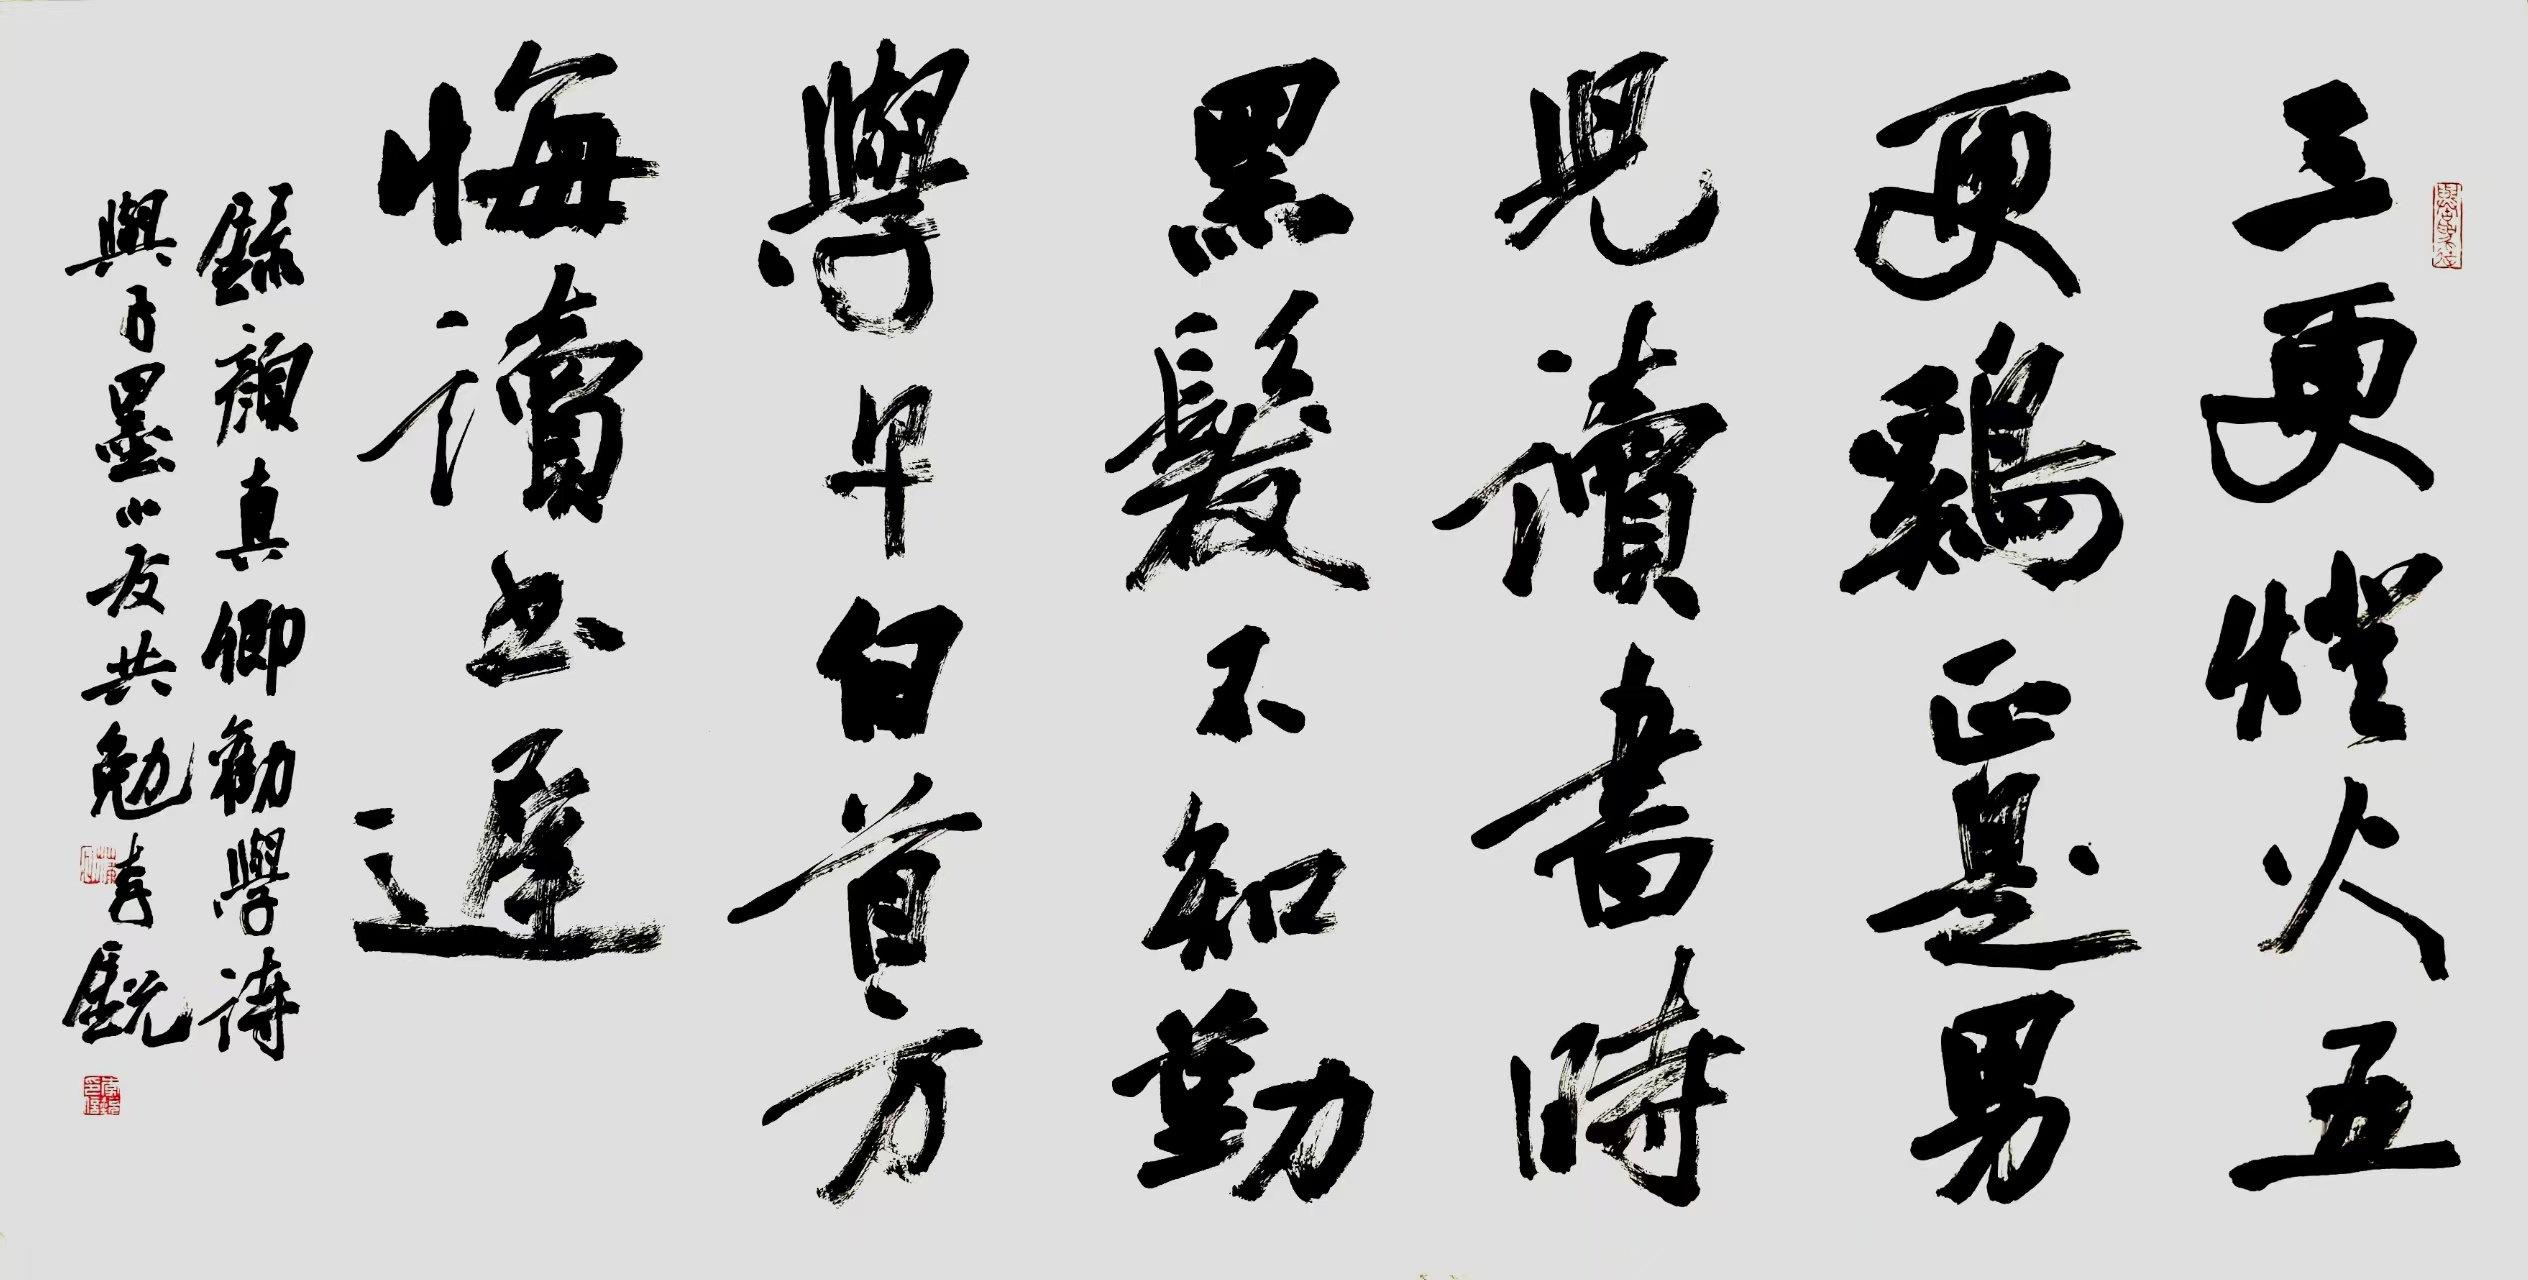 三更燈火五
更鷄正是男
兒讀書時
黑髮不知勤
學早白首方
悔讀書遲
錄顏真卿勸學詩
與子墨小友共勉